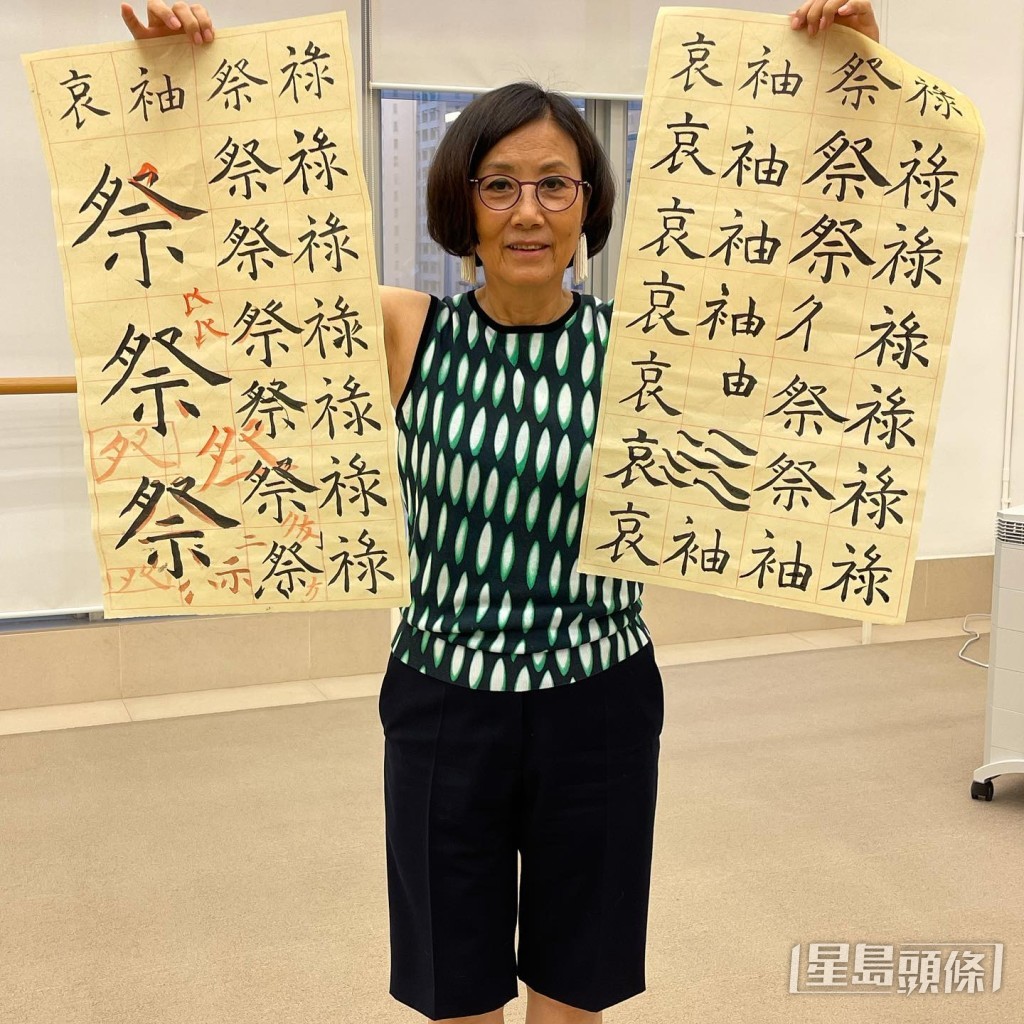 哀 袖 祭 祿
祭 祭 祿
祭 祿
祭 祭 祿
祭 祿
祭 祭 祿
示 祭 祿
哀 袖 祭 祿
哀 袖 祭 祿
哀 袖 祭 祿
哀 袖 祿
哀 由 祭 祿
哀 祭 祿
哀 袖 袖 祿
星島頭條